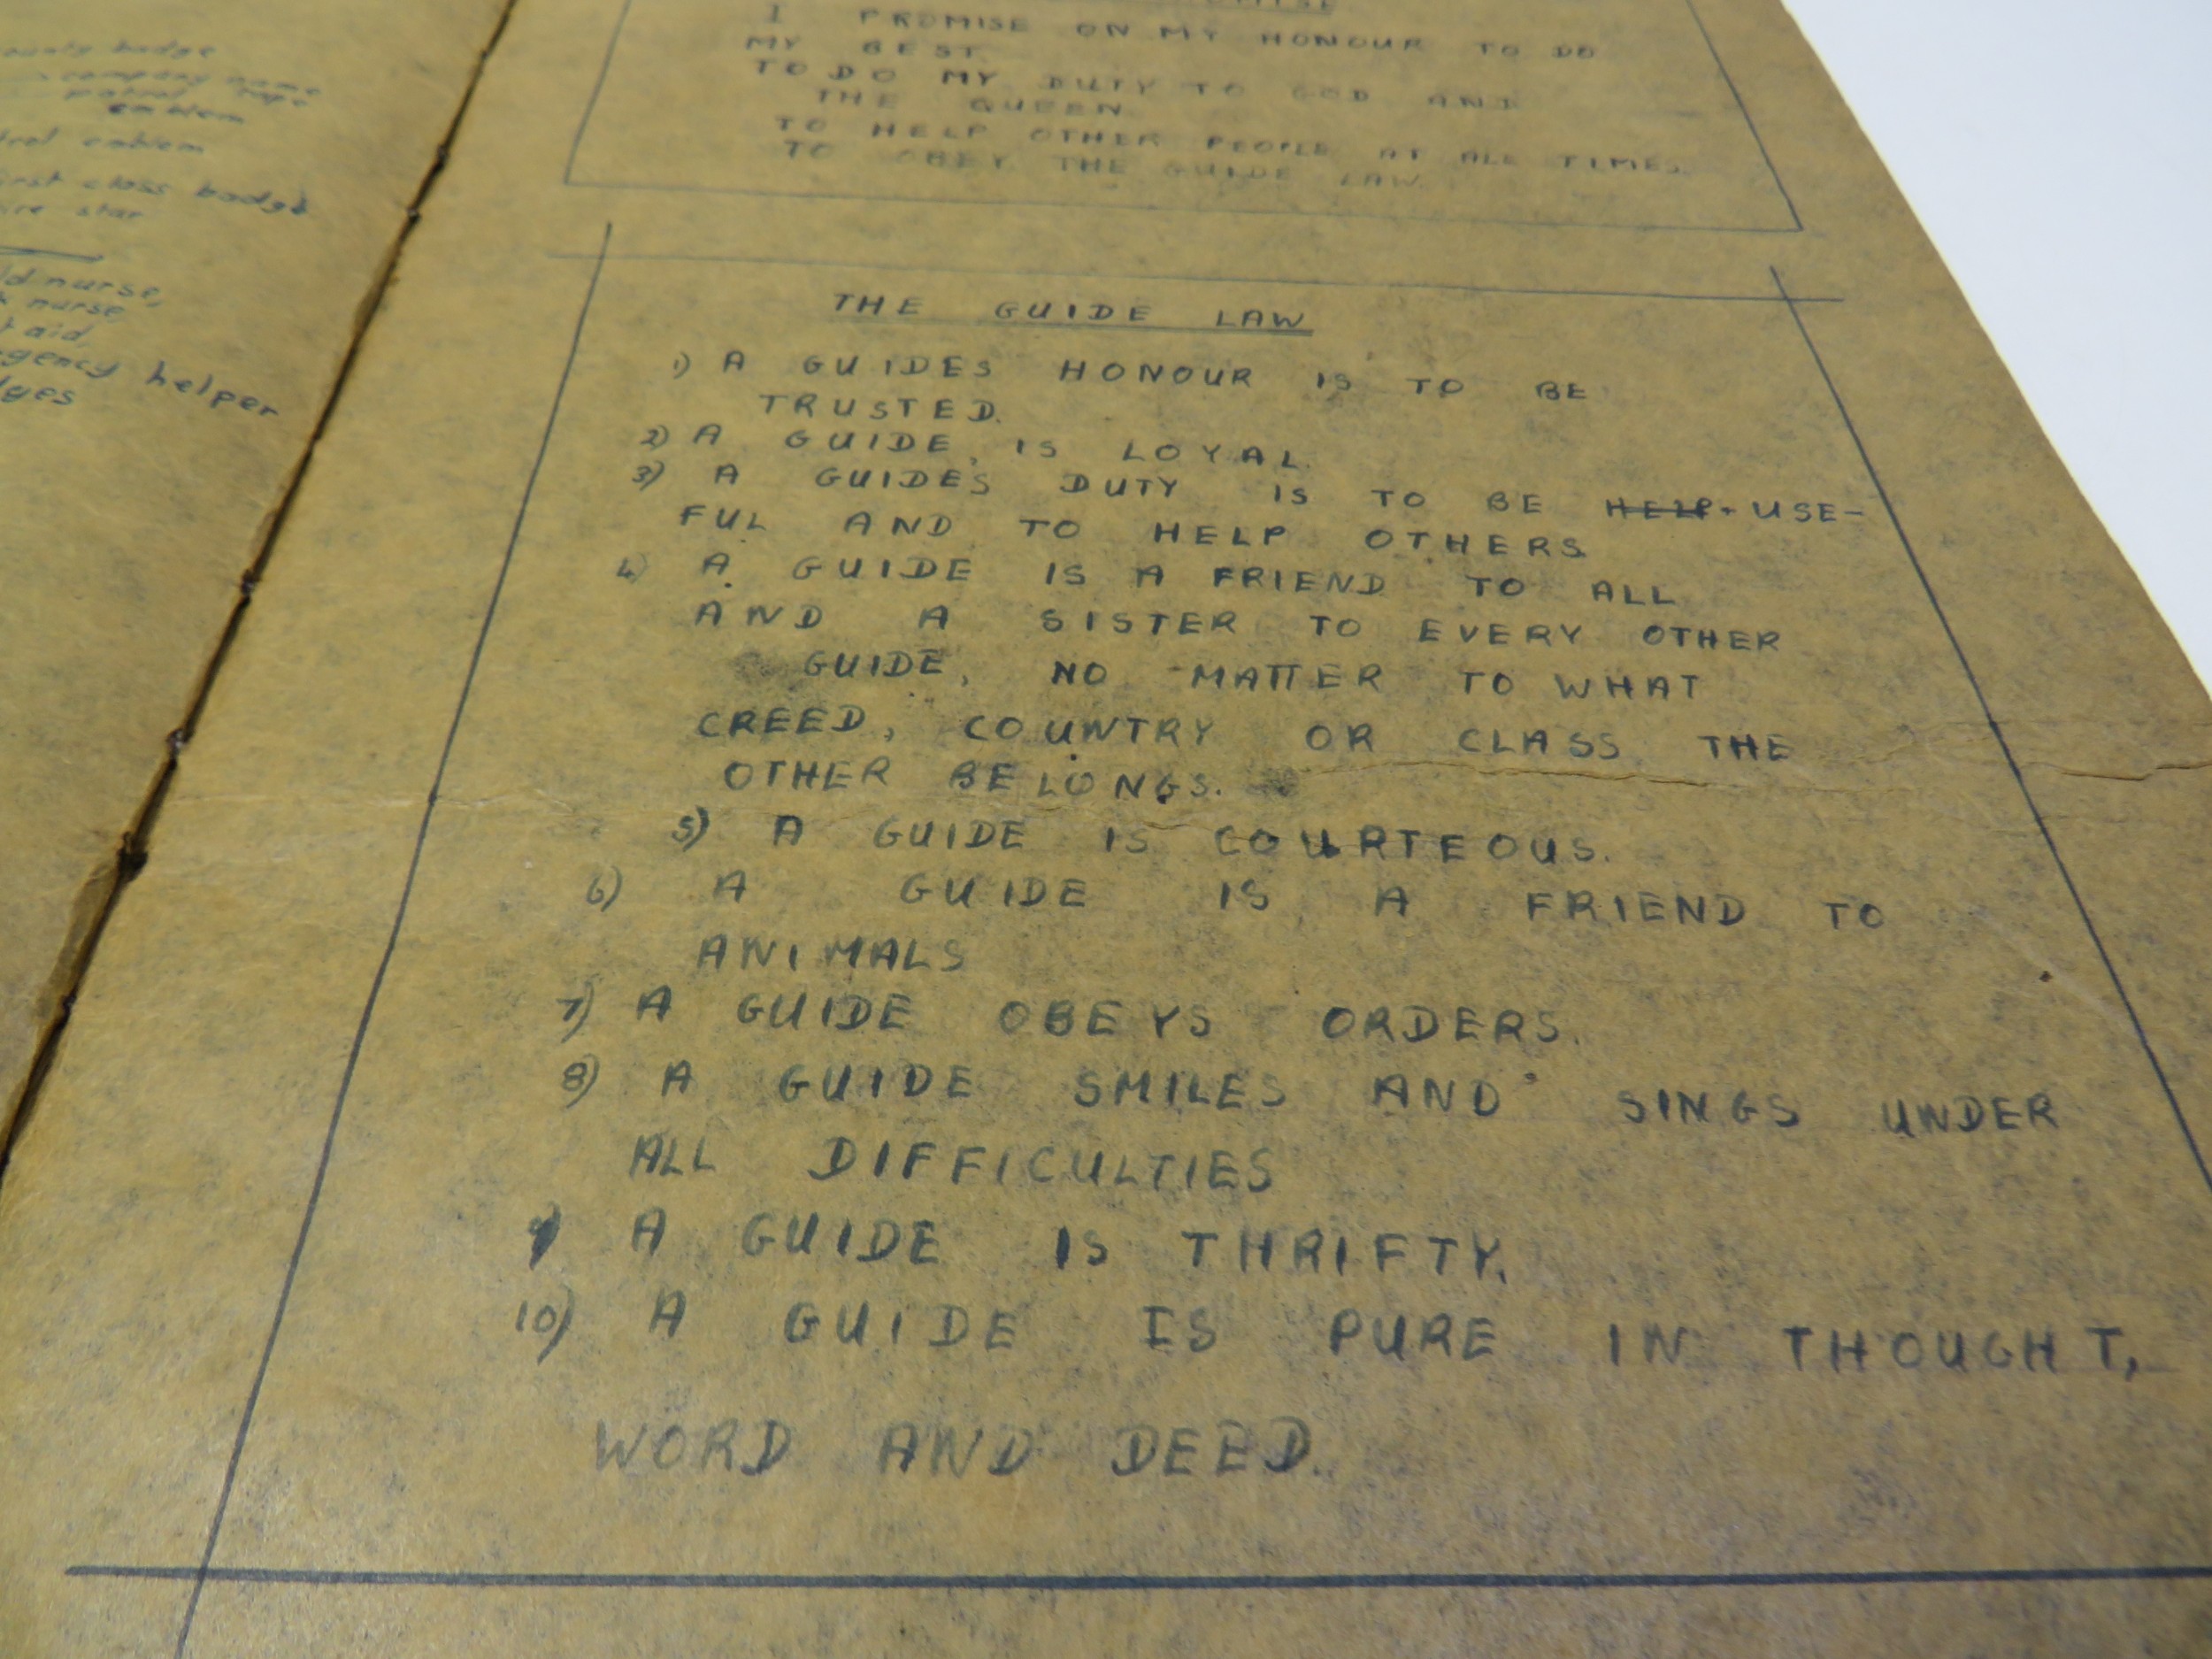 badge
company name
patrol tape
emblem
emblem
first class badge
star
nurse,
nurse,
aid,
helper
I PROMISE ON MY HONOUR TO DO
MY BEST.
TO DO MY DUTY TO GOD AND
THE QUEEN.
TO HELP OTHER PEOPLE AT ALL TIMES.
TO OBEY THE GUIDE LAW.
THE GUIDE LAW
1) A GUIDES HONOUR IS TO BE
TRUSTED.
2) A GUIDE, IS LOYAL.
3) A GUIDES DUTY IS TO BE HELP- USE-
FUL AND TO HELP OTHERS
4) A GUIDE IS A FRIEND TO ALL
AND A SISTER TO EVERY OTHER
GUIDE, NO MATTER TO WHAT
CREED, COUNTRY OR CLASS THE
OTHER BELONGS.
5) A GUIDE IS COURTEOUS.
6) A GUIDE IS A FRIEND TO
ANIMALS
7) A GUIDE OBEYS ORDERS.
8) A GUIDE SMILES AND SINGS UNDER
ALL DIFFICULTIES
9) A GUIDE IS THRIFTY.
10) A GUIDE IS PURE IN THOUGHT,
WORD AND DEED.